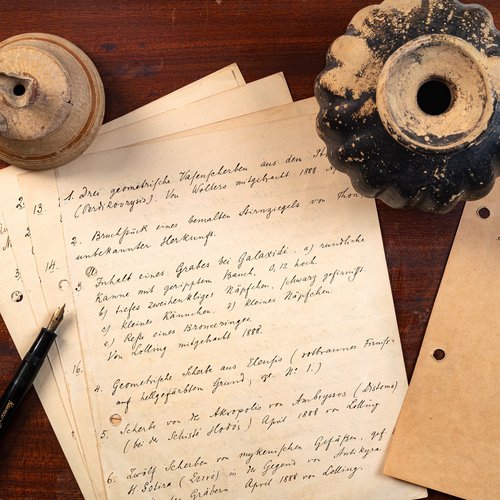 1. Drei geometrische Vasenscherben aus dem
(Perdikovrysis). Von Wolters mitgebracht 1888
2. Bruchstück eines bemalten Stirnziegels von Thon,
unbekannter Herkunft.
3. Inhalt eines Grabes bei Galaxidi. a) rundliche
Kanne mit geripptem Bauch, 0,12 hoch
b) tiefes zweihenkliges Näpfchen, schwarz gefirnißt.
c) kleines Kännchen. d) kleines Näpfchen.
e) Reste eines Bronceringes.
Von Lolling mitgebracht 1888.
4. Geometrische Scherbe aus Eleusis (rotbrauner Firniss
auf hellgefärbtem Grund; vgl. N° 1.)
5. Scherbe von der Akropolis von Ambrysos (Distomo)
(bei der Schistè Hodós) April 1888 von Lolling
6. Zwölf Scherben von mykenischen Gefäßen, gef.
H. Sotira in der Gegend von Antikyra
Gräbern. April 1888 von Lolling.
2.
13.
3.
14.
16.